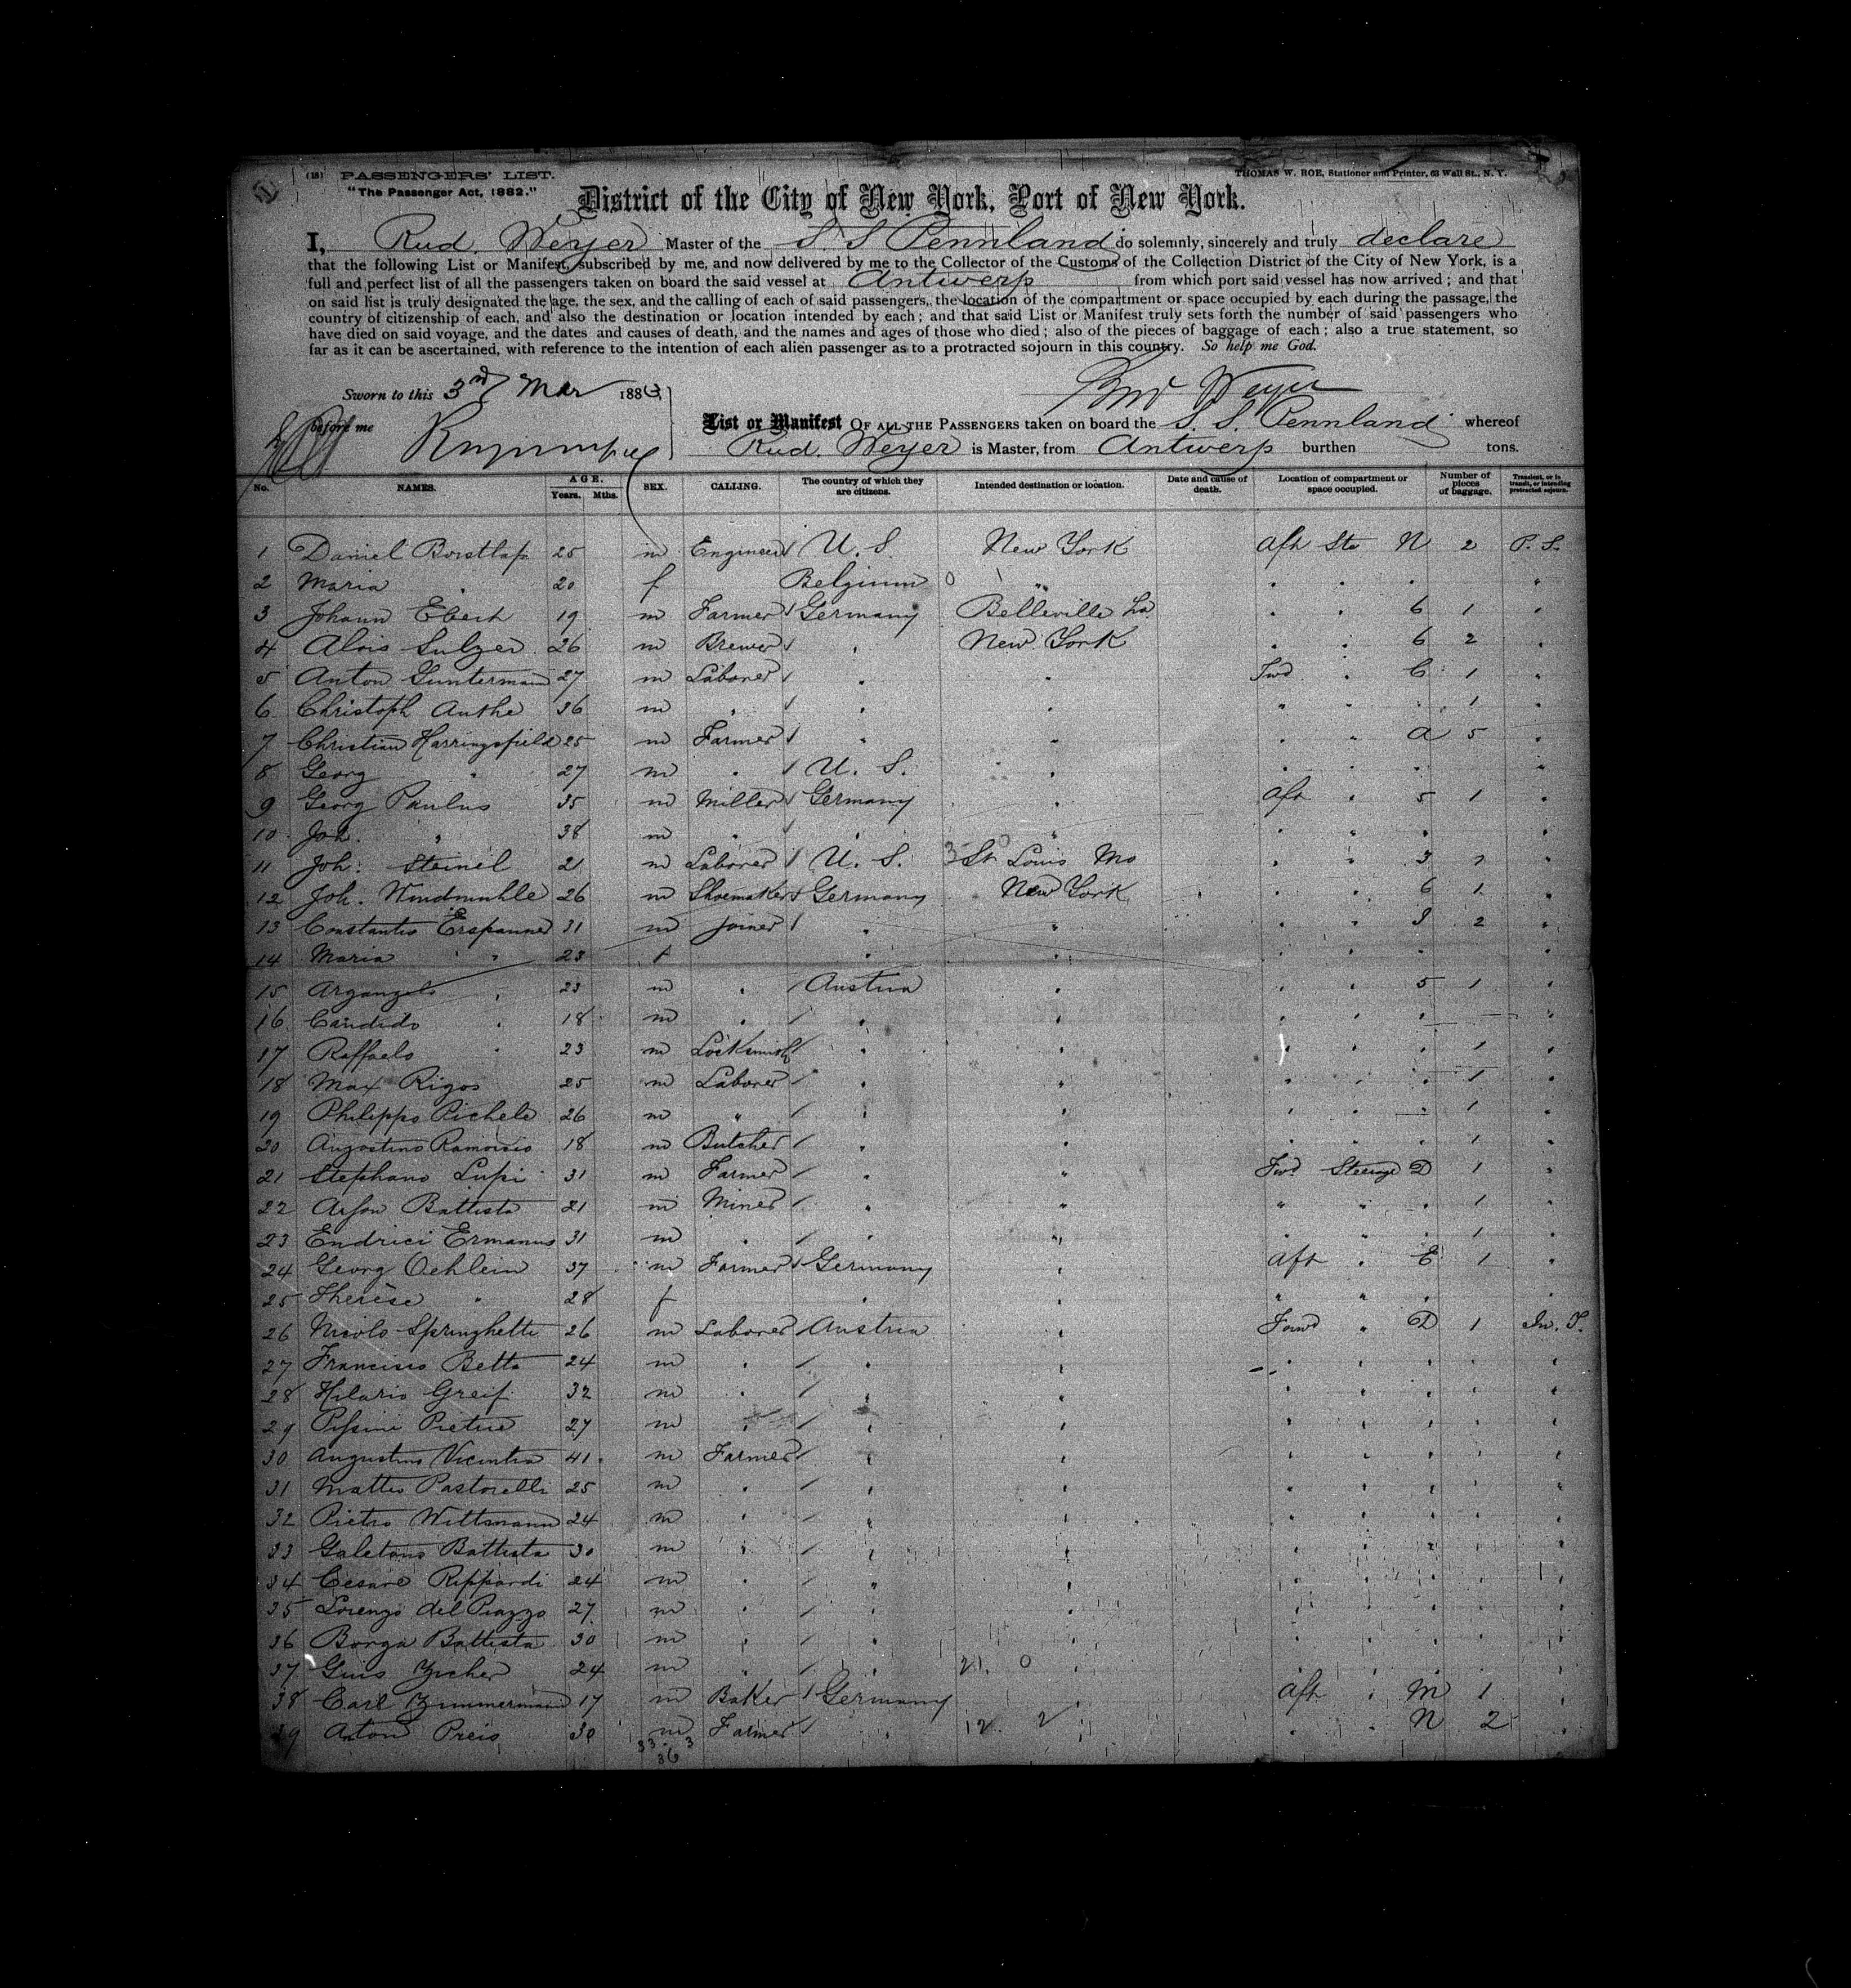 (18) PASSENGERS' LIST.
"The Passenger Act, 1882."
THOMAS W. ROE, Stationer and Printer, 63 Wall St., N. Y.
District of the City of New York, Port of New York.
I, Rud. Weyer Master of the S. S Pennland do solemnly, sincerely and truly declare
that the following List or Manifest, subscribed by me, and now delivered by me to the Collector of the Customs of the Collection District of the City of New York, is a
full and perfect list of all the passengers taken on board the said vessel at Antwerp from which port said vessel has now arrived; and that
on said list is truly designated the age, the sex, and the calling of each of said passengers, the location of the compartment or space occupied by each during the passage, the
country of citizenship of each, and also the destination or location intended by each; and that said List or Manifest truly sets forth the number of said passengers who
have died on said voyage, and the dates and causes of death, and the names and ages of those who died; also of the pieces of baggage of each; also a true statement, so
far as it can be ascertained, with reference to the intention of each alien passenger as to a protracted sojourn in this country. So help me God.
Sworn to this 3rd Mar 1883, Rud Weyer
before me
List or Manifest OF ALL THE PASSENGERS taken on board the S. S. Pennland whereof
Rud. Weyer is Master, from Antwerp burthen tons.
No. NAMES. AGE. Years. Mths. SEX. CALLING. The country of which they are citizens. Intended destination or location. Date and cause of death. Location of compartment or space occupied. Number of pieces of baggage. Transient, or in transit, or intending protracted sojourn.
1 Daniel Borstlap 25 m Engineer U. S. New York Aft Ste N 2 P. S.
2 Maria " 20 f Belgium "
3 Johann Ebert 19 m Farmer Germany Belleville 6 1 "
4 Alois Sulzer 26 m Brewer " New York " " 6 2 "
5 Anton Guntermann 27 m Laborer " " Fwd " C 1 "
6 Christoph Anthe 36 m " " " " " " 1 "
7 Christian Harringsfield 25 m Farmer " " " " A 5 "
8 Georg " 27 m " U. S. " " " " "
9 Georg Paulus 35 m Miller Germany " Aft " 5 1 "
10 Joh. " 38 m " " " " " " "
11 Joh. Steinel 21 m Laborer U. S. St Louis Mo " " 3 "
12 Joh. Windmuhle 26 m Shoemaker Germany New York " " 6 1 "
13 Constantio 31 m Joiner " " " " 2 "
14 Maria " 23 f " " " " " "
15 Arganzelo " 23 m " Austria " " " 5 1 "
16 Candido " 18 m " " " " " " "
17 Raffaelo " 23 m Locksmith " " " " " 1 "
18 Max Rigos 25 m Laborer " " " " " 1 "
19 Philippo Pichele 26 m " " " " " 1 "
20 Augostino 18 m Butcher " " " " " 1 "
21 Stephano Lupi 31 m Farmer " " Fwd Steerage D 1 "
22 Battista 21 m Miner " " " " " 1 "
23 Endrici Ermanus 31 m " " " " " " 1 "
24 Georg Oehlein 37 m Farmer Germany " Aft " E 1 "
25 Therese " 28 f " " " " "
26 Nicolo Springhetti 26 m Laborer Austria " Forwd " D 1 In. T.
27 Francisco Betta 24 m " " " " " " " "
28 Hilario Greif 32 m " " " " " " " "
29 27 m " " " " " " " "
30 Augustino 41 m Farmer " " " " " " "
31 Matteo Pastorelli 25 m " " " " " " " "
32 Pietro Wittmann 24 m " " " " " " " "
33 Battista 30 m " " " " " " " "
34 Cesare Rippardi 24 m " " " " " " " "
35 Lorenzo del Piazzo 27 m " " " " " " " "
36 Borga Battista 30 m " " " " " " " "
37 24 m " " " " " " " "
21. 0
38 Carl Zimmermann 17 m Baker Germany Aft " M 1 "
39 Anton Preis 30 m Farmer " " " N 2 "
12. 2
33. 3
36